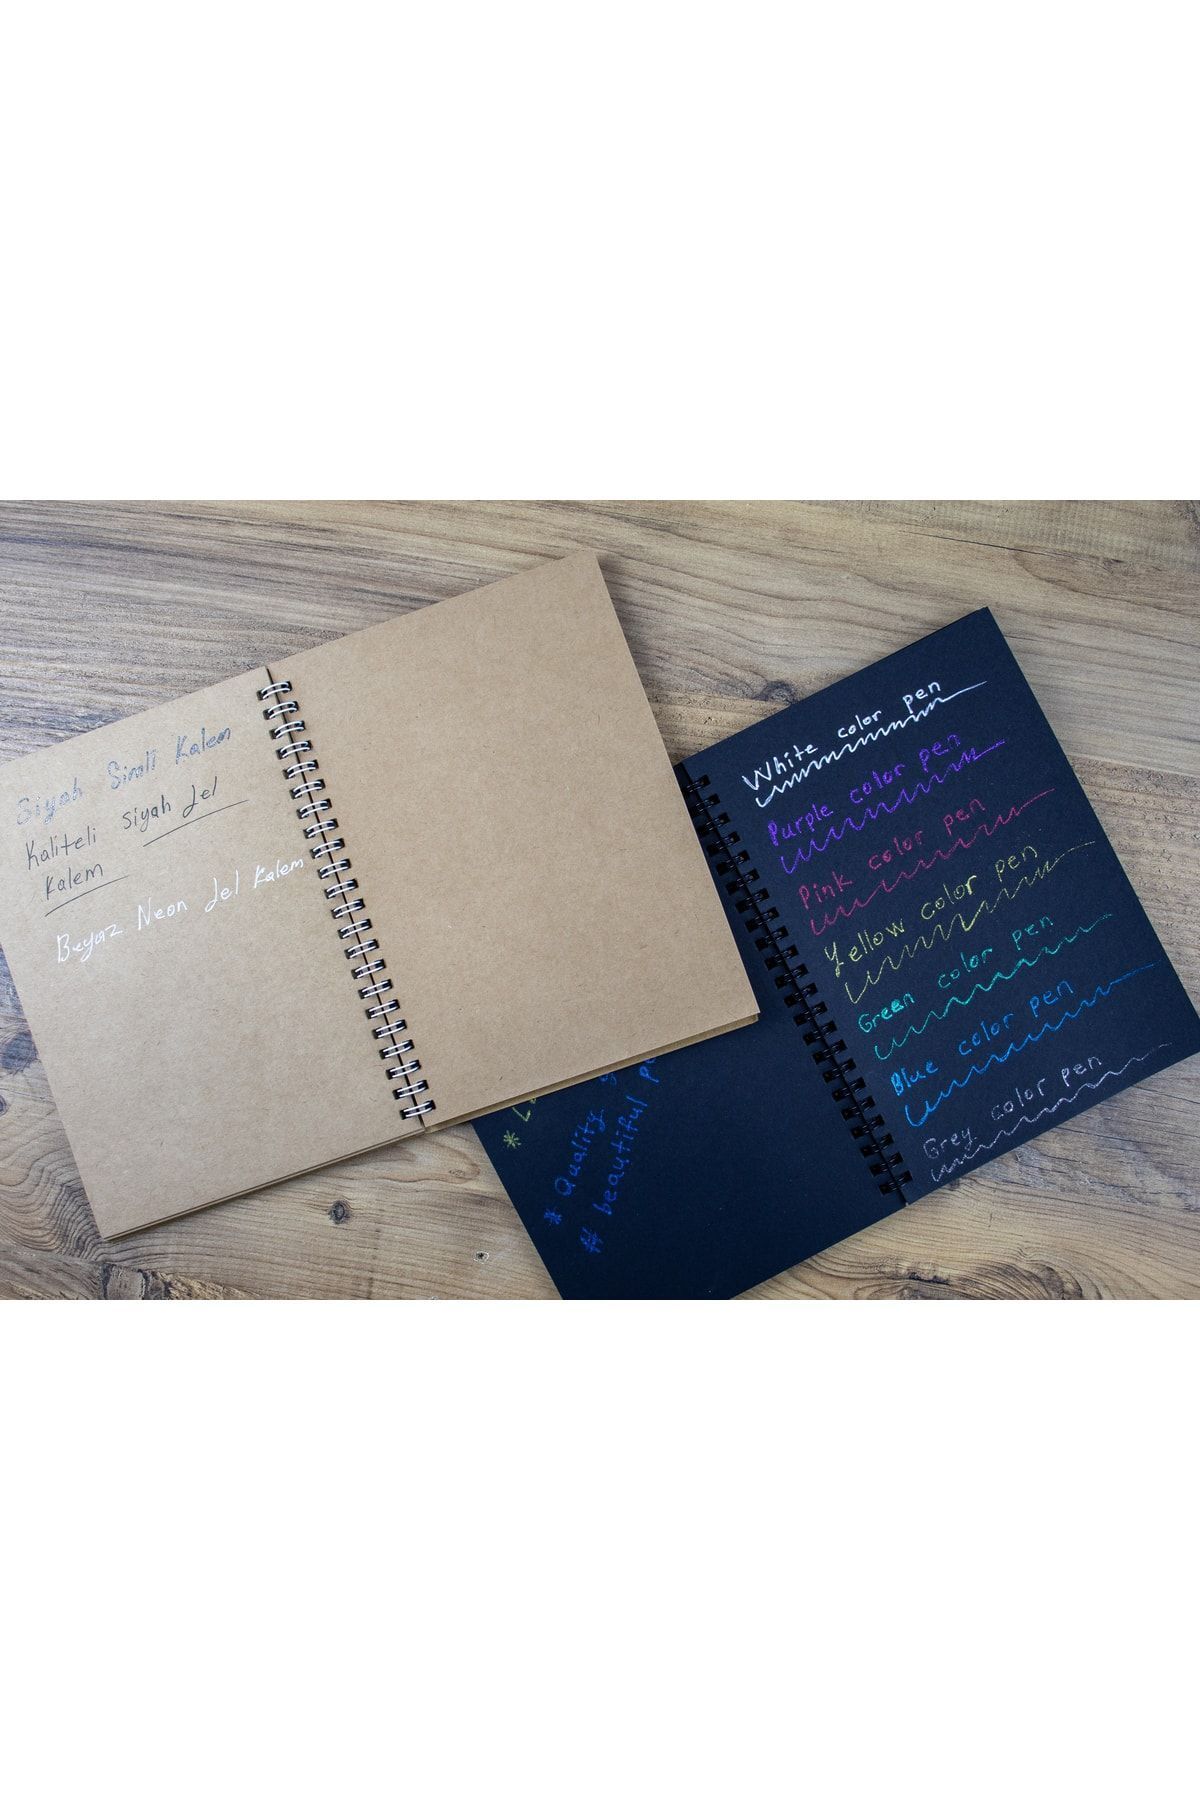 Siyah Simli Kalem
Kaliteli Siyah Jel
Kalem
Beyaz Neon Jel Kalem
White color pen
Purple color pen
Pink color pen
Yellow color pen
Green color pen
Blue color pen
Grey color pen
* Quality
# beautiful